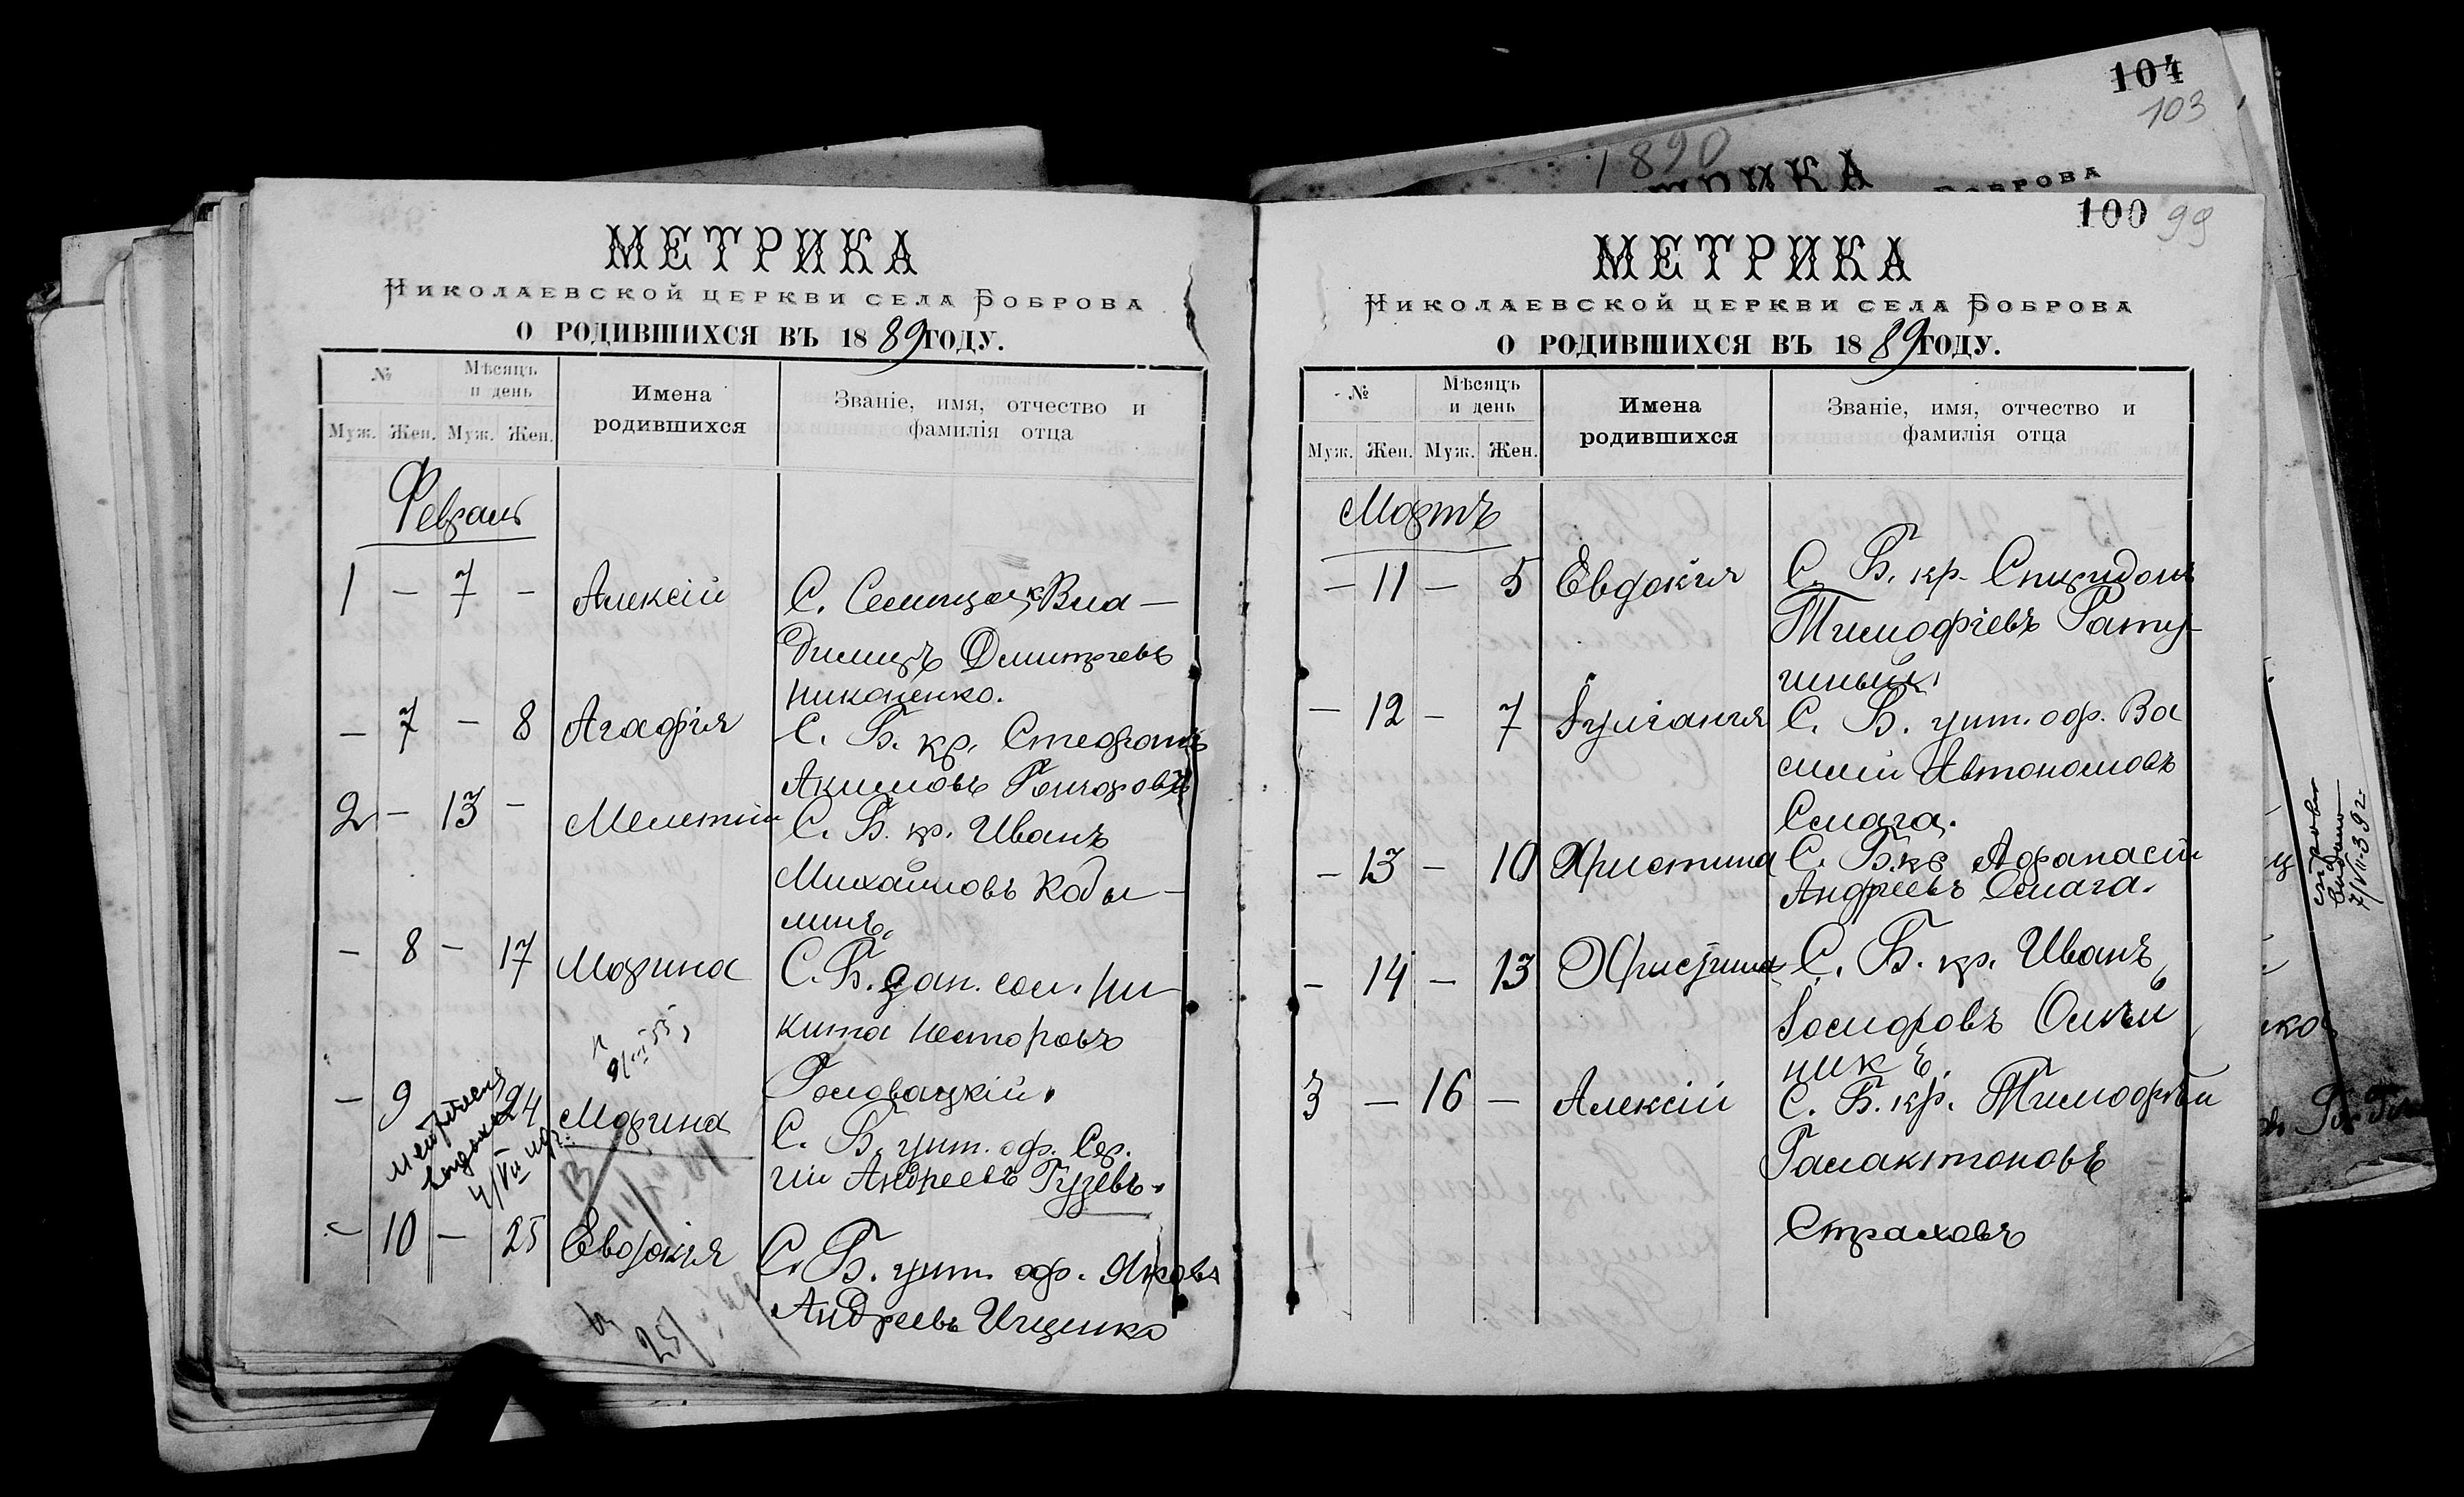 104
103
1890
МЕТРИКА
БОБРОВА
МЕТРИКА
НИКОЛАЕВСКОЙ ЦЕРКВИ СЕЛА БОБРОВА
О РОДИВШИХСЯ ВЪ 1889 ГОДУ.
№
Мѣсяцъ и день
Имена родившихся
Званіе, имя, отчество и фамилія отца
Муж. Жен. Муж. Жен.
Февраль
1 – 7 – Алексій С. Вла–
димиръ Димитріевъ
Никоненко.
– 7 – 8 Агафія С. Б. кр. Стефанъ
Акимовъ Гончаровъ
2 – 13 – Мелетій С. Б. кр. Иванъ
Михайловъ Кобы–
линъ.
– 8 – 17 Марина С. Б. зап. сол. Ни
кита Несторовъ
Головацкій.
– 9 24 Марина С. Б. унт. оф. Сер.
гій Андреевъ Гузевъ.
– 10 – 25 Евдокія С. Б. унт. оф. Яковъ
Андреевъ Ищенко
100 99
МЕТРИКА
НИКОЛАЕВСКОЙ ЦЕРКВИ СЕЛА БОБРОВА
О РОДИВШИХСЯ ВЪ 1889 ГОДУ.
№
Мѣсяцъ и день
Имена родившихся
Званіе, имя, отчество и фамилія отца
Муж. Жен. Муж. Жен.
Мартъ
– 11 – 5 Евдокія С. Б. кр. Спиридонъ
Тимофіевъ Рату–
шный.
– 12 – 7 Іуліанія С. Б. унт. оф. Ва
силій Автономовъ
Смага.
– 13 – 10 Христина С. Б. кр Афанасій
Андреевъ Смага.
– 14 – 13 Христина С. Б. кр. Иванъ
Іосифовъ Олѣй
никъ.
3 – 16 – Алексій С. Б. кр. Тимофѣй
Галактоновъ
Страховъ